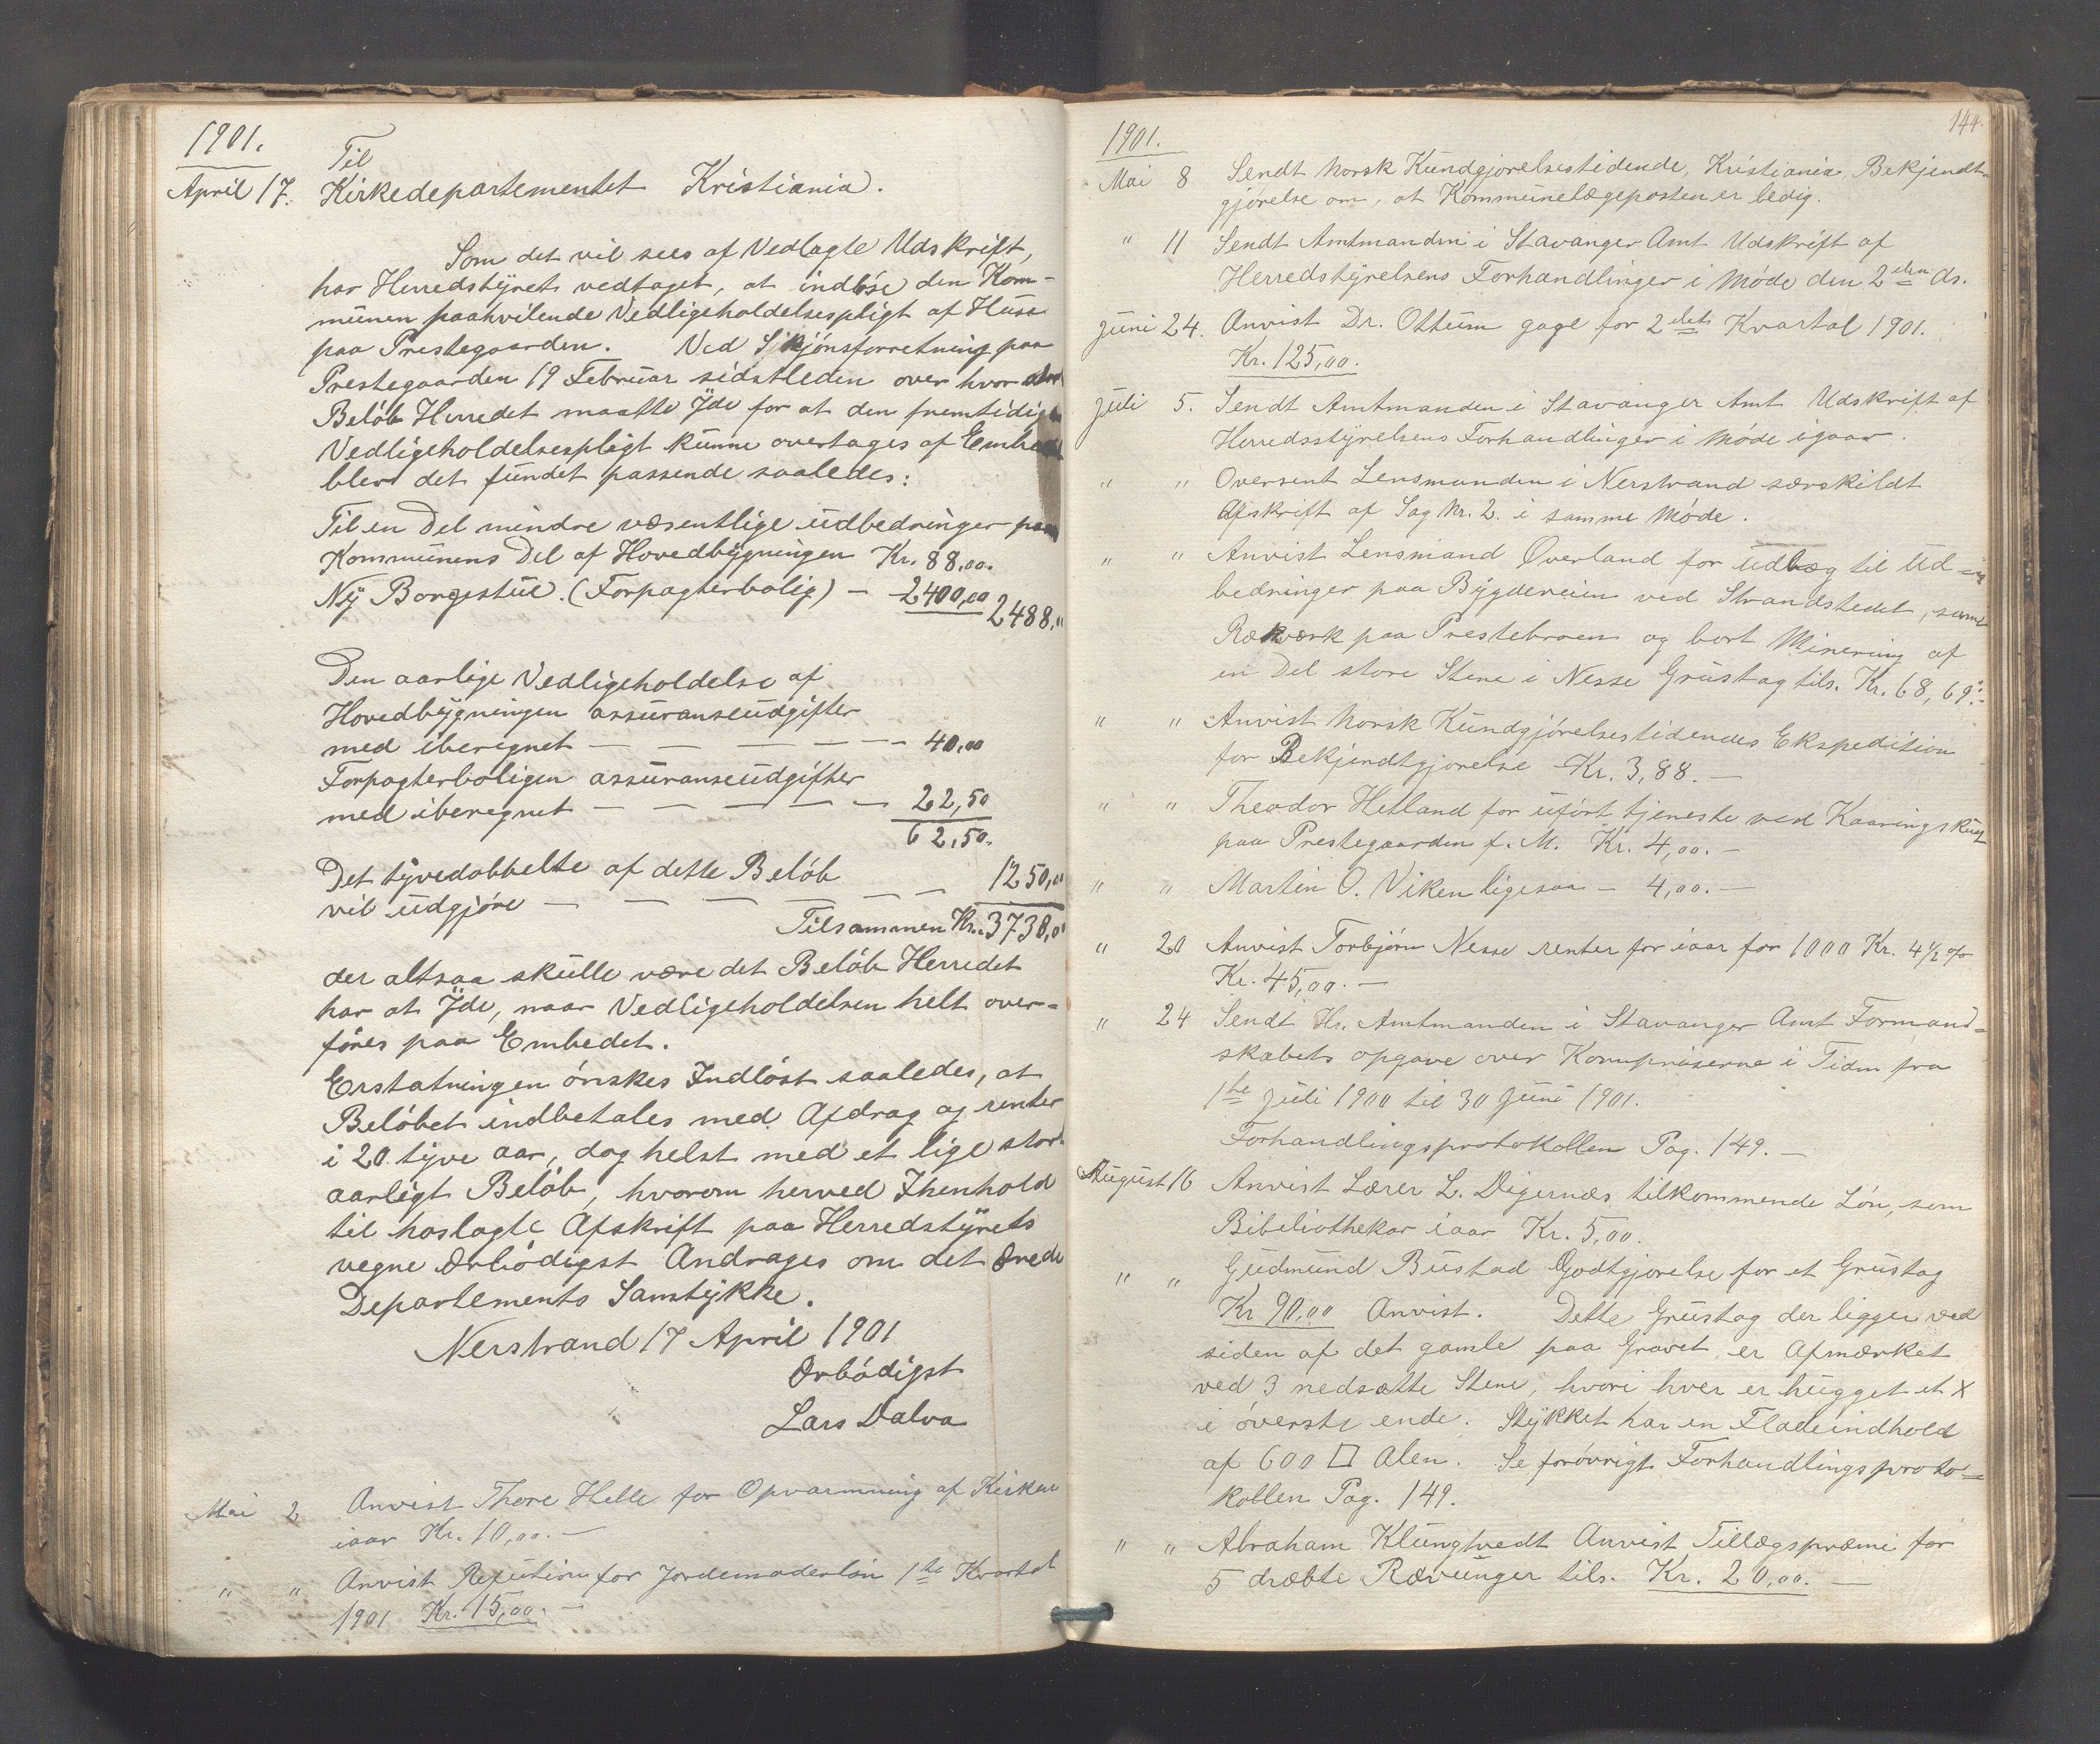 1901.
Til
April 17. Kirkedepartementet Kristiania.
Som det vil sees af Vedlagte Udskrift,
har Herredstyret vedtaget, at indløse den Kom-
munen paahvilende Vedligeholdelsespligt af Huse
paa Prestegaarden. Ved Skjønsforretning paa
Prestegaarden 19 Februar sidstleden over hvor
Beløb Herredet maatte Yde for at den fremtidige
Vedligeholdelsespligt kunne overtages af
blev det fundet passende saaledes:
Til en Del mindre væsentlige udbedringer paa
Kommunens Del af Hovedbygningen Kr. 88,00.
Ny Borgestue. (Forpagterbolig) — 2400,00 2488,"
Den aarlige Vedligeholdelse af
Hovedbygningen assuranseudgifter
med iberegnet — — — — — 40,00
Forpagterboligen assuranseudgifter
med iberegnet — — — — — 22,50
62,50.
Det tyvedobbelte af dette Beløb
vil udgjøre — — — — — — 1250,00
Tilsammen Kr. 3738,00
der altsaa skulle være det Beløb Herredet
har at Yde, naar Vedligeholdelsen helt over-
føres paa Embedet.
Erstatningen ønskes Indløst saaledes, at
Beløbet indbetales med Afdrag og renter
i 20 tyve aar, dog helst med et lige stort
aarligt Beløb, hvorom herved Ihenhold
til hoslagte Afskrift paa Herredstyrets
vegne Ærbødigst Andrages om det Ærede
Departements Samtykke.
Nerstrand 17 April 1901
Ærbødigst
Lars Dalva
Mai 2 Anvist Thore Helle for Opvarmning af Kirken
iaar Kr. 10,00. —
" " Anvist Refution for Jordemoderløn 1te Kvartal
1901 Kr. 15,00. —
144.
1901.
Mai 8 Sendt Norsk Kundgjørelsestidende, Kristiania, Bekjendt-
gjørelse om, at Kommunelægeposten er ledig.
" 11 Sendt Amtmanden i Stavanger Amt Udskrift af
Herredstyrelsens Forhandlinger i Møde den 2den ds.
Juni 24. Anvist Dr. Ottum gage for 2det Kvartal 1901.
Kr. 125,00.
Juli 5. Sendt Amtmanden i Stavanger Amt Udskrift af
Herredsstyrelsens Forhandlinger i Møde igaar.
" " Oversent Lensmanden i Nerstrand særskildt
Afskrift af Sag Nr. 2. i samme Møde.
" " Anvist Lensmand Øverland for udlæg til Ud-
bedringer paa Bygdeveien ved Strandstedet, samt
Rækværk paa Prestebroen og bort Minering af
en Del store Stene i Nesse Grustag tils. Kr. 68,69.
" " Anvist Norsk Kundgjørelsestidendes Ekspedition
for Bekjendtgjørelse Kr. 3,88. —
" " Theodor Hetland for uført tjeneste ved Kaaringskur
paa Prestegaarden f. M. Kr. 4,00. —
" " Martin O. Viken ligesaa — 4,00. —
" 20 Anvist Torbjørn Nesse renter for iaar for 1000 Kr. 4½ %
Kr. 45,00. —
" 24 Sendt Hr. Amtmanden i Stavanger Amt Formand-
skabets opgave over Kornpriserne i Tiden fra
1te Juli 1900 til 30 Juni 1901.
Forhandlingsprotokollen Pag. 149. —
August 16 Anvist Lærer L. Digernæs tilkommende Løn, som
Bibeliothekar iaar Kr. 5,00.
" " Gudmund Bustad Godtgjørelse for et Grustag
Kr 90,00 Anvist. Dette Grustag der ligger ved
siden af det gamle paa Gravet er Afmærket
ved 3 nedsætte Stene, hvori hver er hugget et X
i øverste ende. Stykket har en Fladeindhold
af 600 □ Alen. Se forøvrigt Forhandlingsproto-
kollen Pag. 149.
" " Abraham Klungtvedt Anvist Tillægspræmi for
5 dræbte Rævunger tils. Kr. 20,00. —